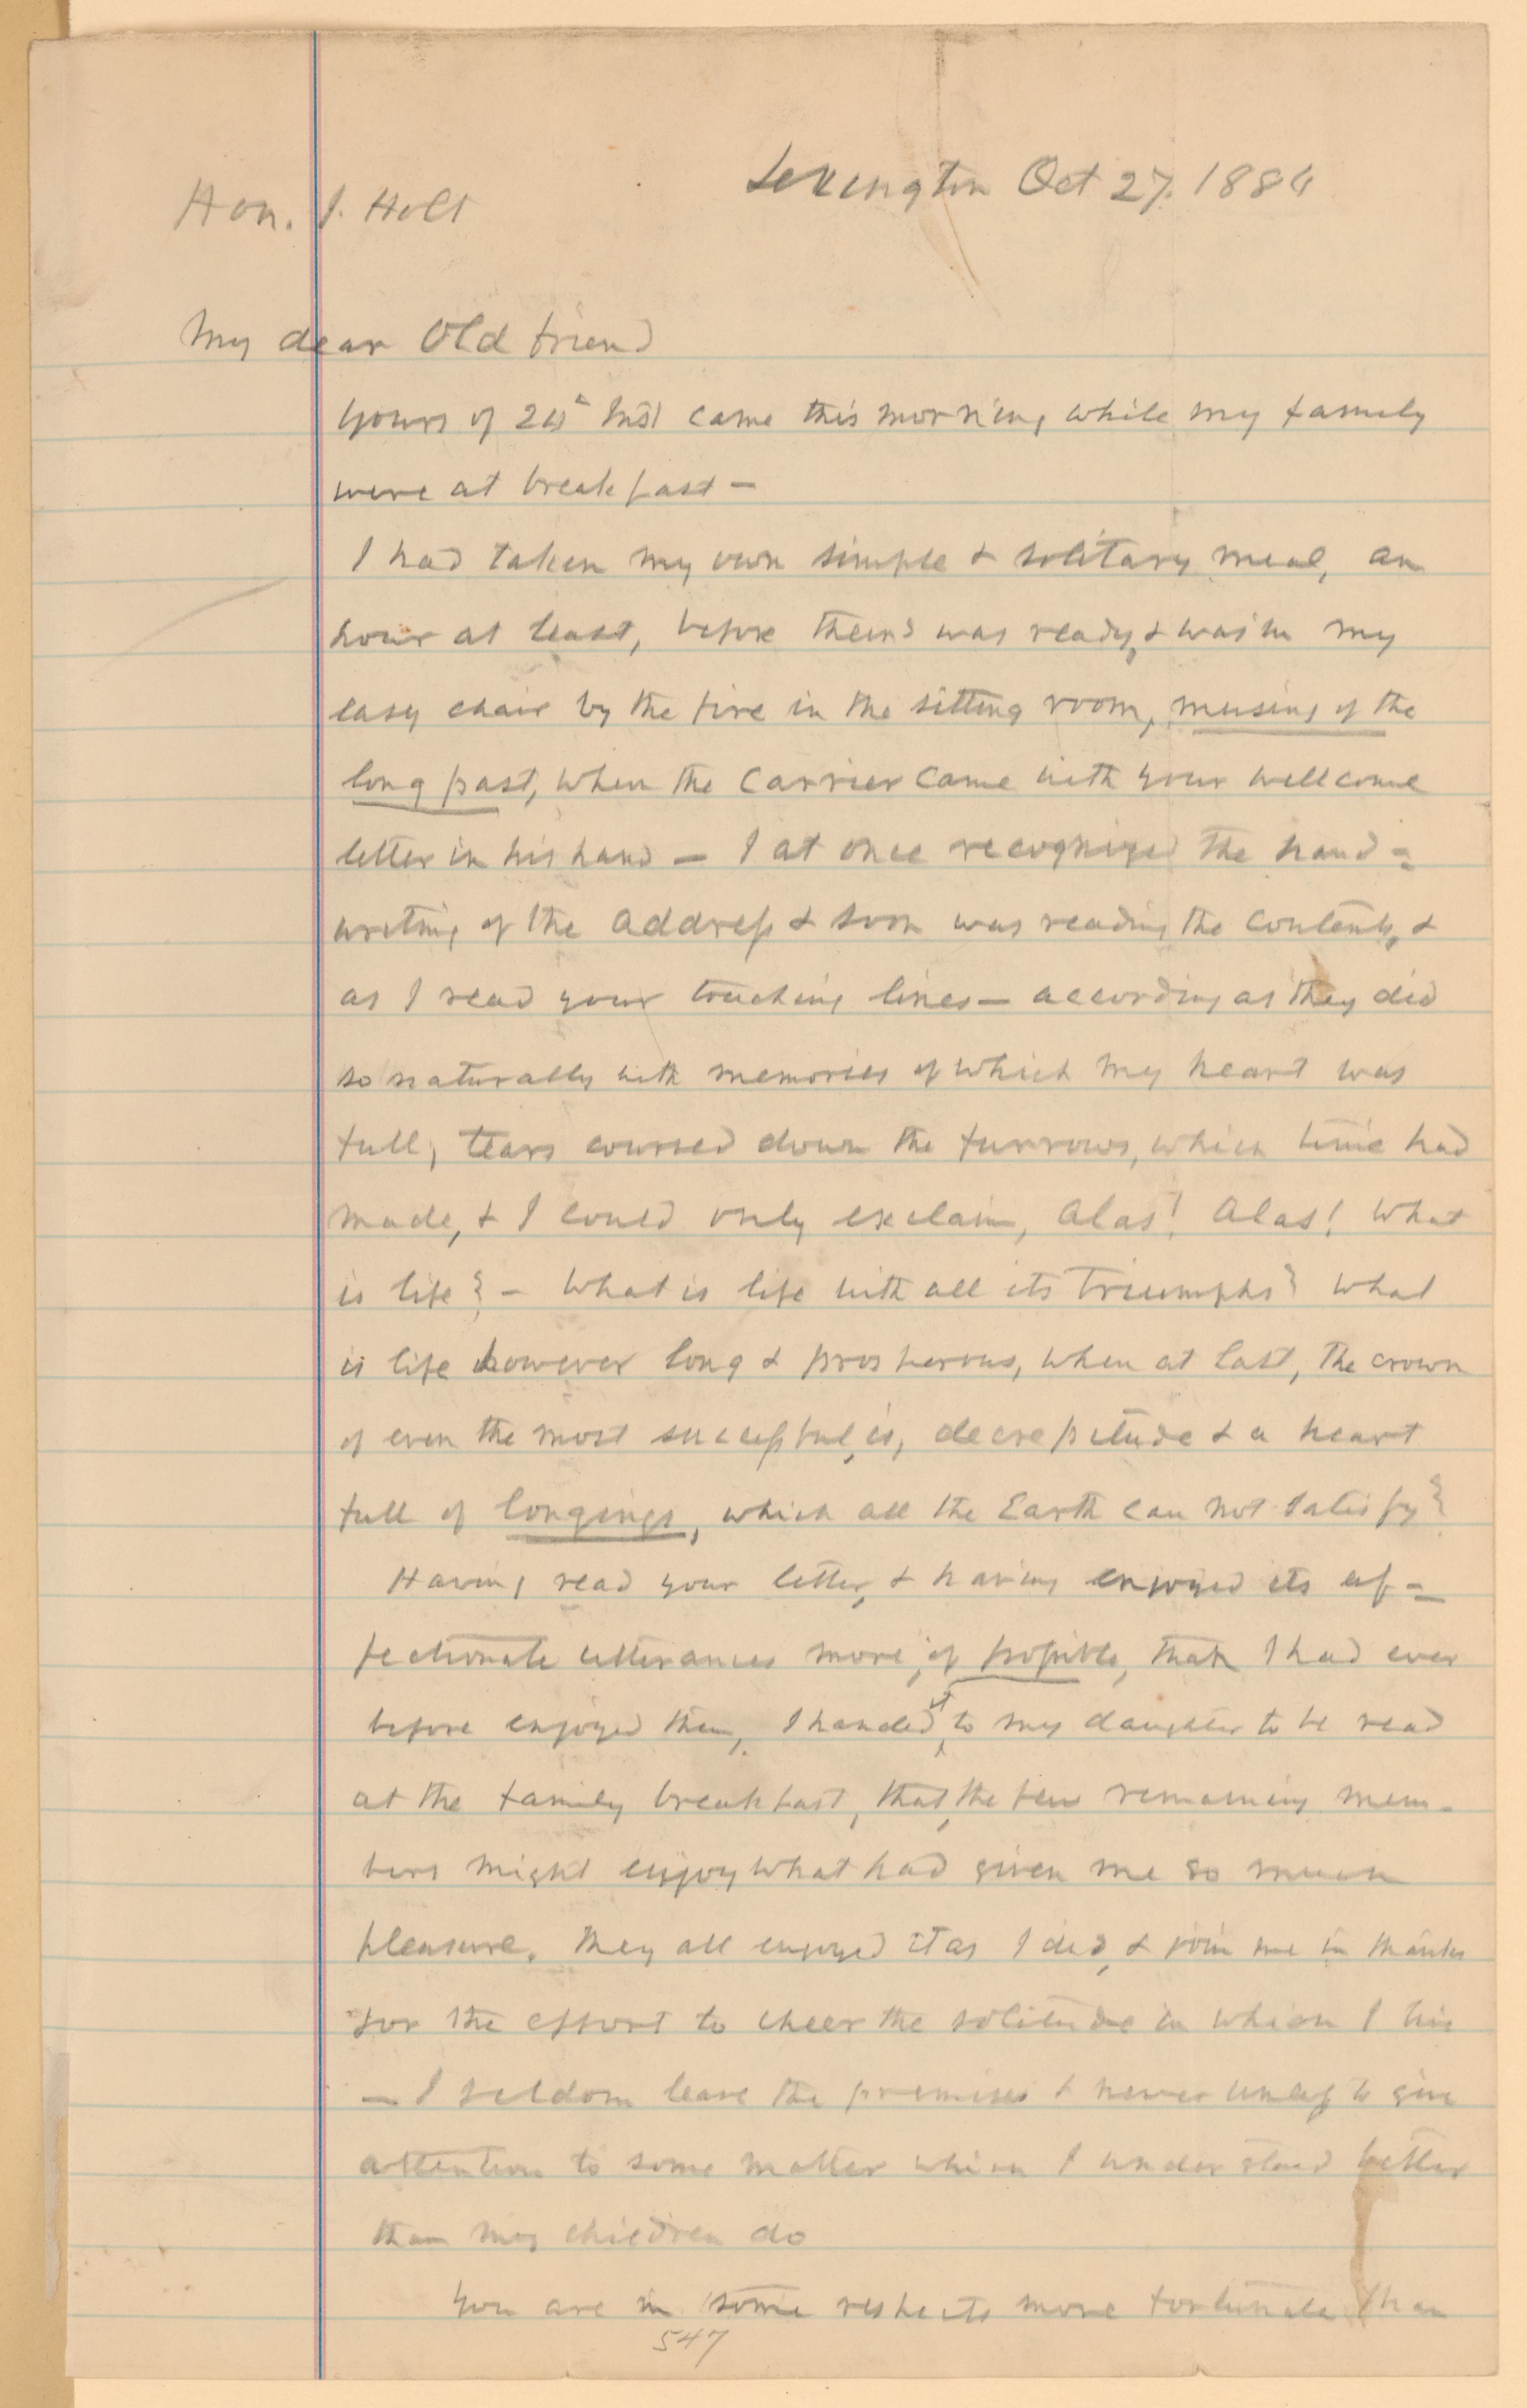 Lexington Oct 27. 1884
Hon. J. Holt
My dear Old friend
Yours of 24th Inst came this morning while my family
were at breakfast –
I had taken my own simple & solitary meal, an
hour at least, before theirs was ready, & was in my
easy chair by the fire in the sitting room, musing of the
long past, when the Carrier Came with your wellcome
letter in his hand – I at once recognized the hand=
writing of the address & soon was reading the contents, &
as I read your touching lines – according as they did
so naturally with memories of which my heart was
full, tears coursed down the furrows, which time had
made, & I could only exclaim, Alas! Alas! What
is life? – What is life with all its triumphs? What
is life however long & prosperous, when at last, the crown
of even the most successful, is, decrepitude & a heart
full of longings, which all the Earth can not satisfy?
Having read your letter, & having enjoyed its af=
fectionate utterances more, if possible, than I had ever
before enjoyed them, I handed it to my daughter to be read
at the family breakfast, that, the few remaining mem-
bers might enjoy what had given me so much
pleasure. They all enjoyed it as I did, & join me in thanks
for the effort to cheer the solitude in which I live
– I seldom leave the premises & never unless to give
attention to some matter which I understand better
than my children do
You are in some respects more fortunate than
547